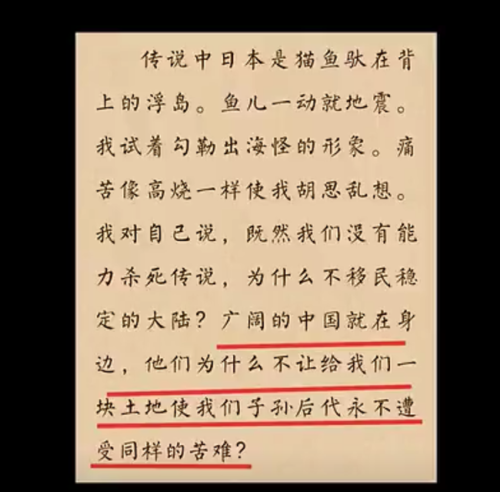 传说中日本是猫鱼驮在背
上的浮岛。鱼儿一动就地震。
我试着勾勒出海怪的形象。痛
苦像高烧一样使我胡思乱想。
我对自己说，既然我们没有能
力杀死传说，为什么不移民稳
定的大陆？广阔的中国就在身
边，他们为什么不让给我们一
块土地使我们子孙后代永不遭
受同样的苦难？